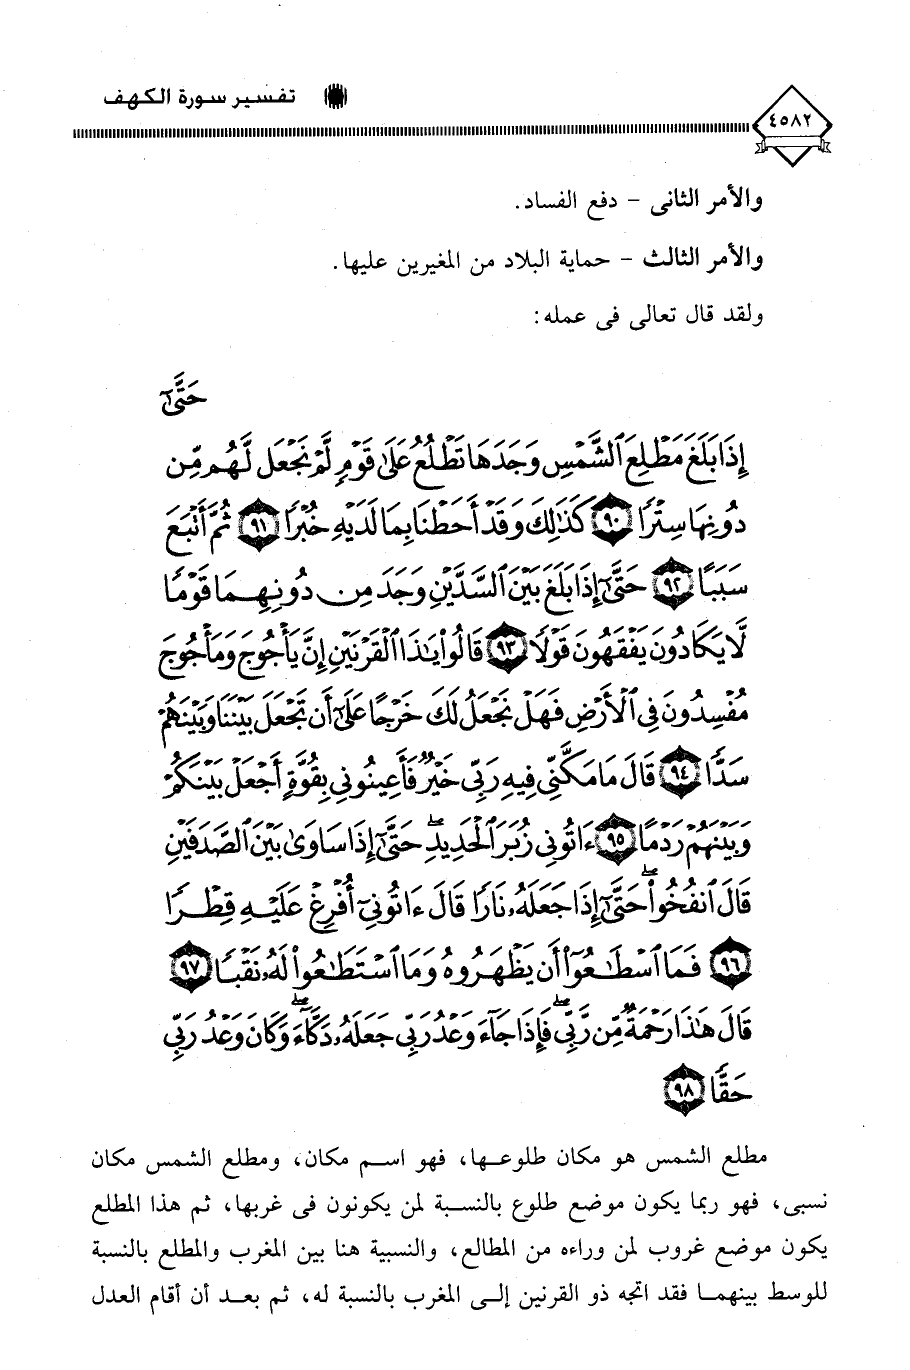 تفسير سورة الكهف
٤٥٨٢
والأمر الثانى - دفع الفساد.
والأمر الثالث - حماية البلاد من المغيرين عليها.
ولقد قال تعالى فى عمله:
حَتَّىٰٓ
إِذَا بَلَغَ مَطْلِعَ ٱلشَّمْسِ وَجَدَهَا تَطْلُعُ عَلَىٰ قَوْمٍ لَّمْ نَجْعَل لَّهُم مِّن
دُونِهَا سِتْرًا ﴿٩٠﴾ كَذَٰلِكَ وَقَدْ أَحَطْنَا بِمَا لَدَيْهِ خُبْرًا ﴿٩١﴾ ثُمَّ أَتْبَعَ
سَبَبًا ﴿٩٢﴾ حَتَّىٰٓ إِذَا بَلَغَ بَيْنَ ٱلسَّدَّيْنِ وَجَدَ مِن دُونِهِمَا قَوْمًا
لَّا يَكَادُونَ يَفْقَهُونَ قَوْلًا ﴿٩٣﴾ قَالُوا۟ يَٰذَا ٱلْقَرْنَيْنِ إِنَّ يَأْجُوجَ وَمَأْجُوجَ
مُفْسِدُونَ فِى ٱلْأَرْضِ فَهَلْ نَجْعَلُ لَكَ خَرْجًا عَلَىٰٓ أَن تَجْعَلَ بَيْنَنَا وَبَيْنَهُمْ
سَدًّا ﴿٩٤﴾ قَالَ مَا مَكَّنِّى فِيهِ رَبِّى خَيْرٌ فَأَعِينُونِى بِقُوَّةٍ أَجْعَلْ بَيْنَكُمْ
وَبَيْنَهُمْ رَدْمًا ﴿٩٥﴾ ءَاتُونِى زُبَرَ ٱلْحَدِيدِ ۖ حَتَّىٰٓ إِذَا سَاوَىٰ بَيْنَ ٱلصَّدَفَيْنِ
قَالَ ٱنفُخُوا۟ ۖ حَتَّىٰٓ إِذَا جَعَلَهُۥ نَارًا قَالَ ءَاتُونِىٓ أُفْرِغْ عَلَيْهِ قِطْرًا
﴿٩٦﴾ فَمَا ٱسْطَٰعُوٓا۟ أَن يَظْهَرُوهُ وَمَا ٱسْتَطَٰعُوا۟ لَهُۥ نَقْبًا ﴿٩٧﴾
قَالَ هَٰذَا رَحْمَةٌ مِّن رَّبِّى ۖ فَإِذَا جَآءَ وَعْدُ رَبِّى جَعَلَهُۥ دَكَّآءَ ۖ وَكَانَ وَعْدُ رَبِّى
حَقًّا ﴿٩٨﴾
مطلع الشمس هو مكان طلوعها، فهو اسم مكان، ومطلع الشمس مكان
نسبى، فهو ربما يكون موضع طلوع بالنسبة لمن يكونون فى غربها، ثم هذا المطلع
يكون موضع غروب لمن وراءه من المطالع، والنسبية هنا بين المغرب والمطلع بالنسبة
للوسط بينهما فقد اتجه ذو القرنين إلى المغرب بالنسبة له، ثم بعد أن أقام العدل